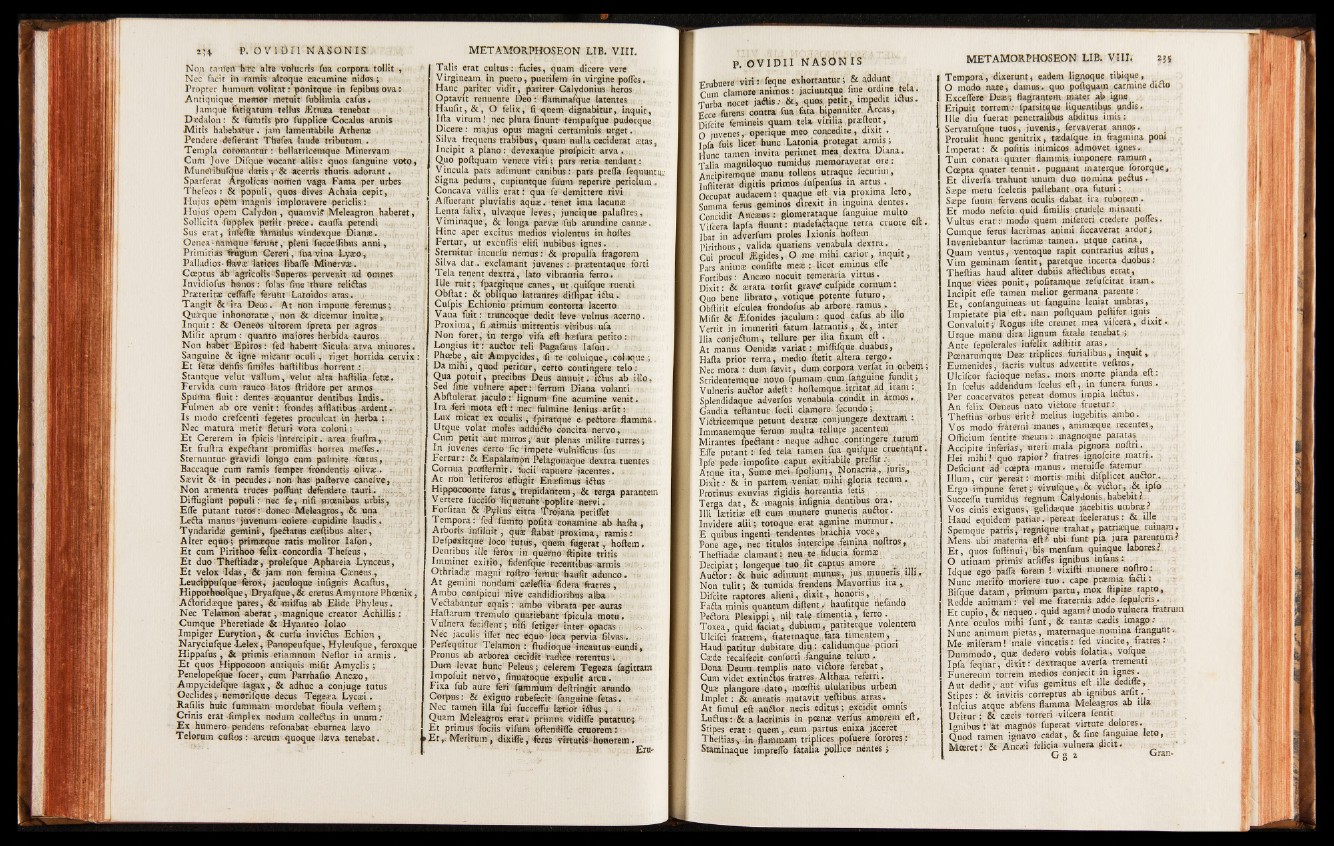 234 P. OVIDII NASONIS
Non tamen hæc alte volucris sua corpora tollit,
Nec facit in ramis altoque cacumine nidos;
Propter humum volitat: ponitque in sepibus ova:
Antiquique memor metuit sublimia casus.
Jamque fatigatum tellus Ætnæa tenebat
Dædalon: & sumtis pro supplice Cocalus armis
Mitis habebatur. jam lamentabile Athenæ
Pendere desierant Thesea laude tributum.
Templa coronantur: bellatricemque Minervam
Cum Jove Disque vocant aliis: quos sanguine voto,
Muneribusque datis, & acerris thuris adorant.
Sparserat Argolicas nomen vaga Fama per urbes
Theseos: & populi, quos dives Achaia cepit,
Hujus opem magnis imploravere periclis:
Hujus opem Calydon, quamvis Meleagron haberet,
Sollicita supplex petiit prece. caussa petendi
Sus erat, infestæ famulus vindexque Dianæ.
Oenea namque ferunt, pleni successibus anni,
Primitias frugum Cereri, sua vina Lyæo,
Palladios flavæ latices libasse Minervæ.
Cœptus ab agricolis Superos pervenit ad omnes
Invidiosus honos: solas sine thure relictas
Præteritæ cessasse ferunt Latoidos aras.
Tangit & ira Deos. At non impune feremus;
Quæque inhonoratæ, non & dicemur inultæ,
Inquit: & Oeneos ultorem spreta per agros
Misit aprum: quanto majores herbida tauros
Non habet Epiros: sed habent Sicula arva minores.
Sanguine & igne micant oculi, riget horrida cervix:
Et setæ densis similes hastilibus horrent:
Stantque velut vallum, velut alta hastilia setæ.
Fervida cum rauco latos stridore per armos
Spuma fluit: dentes æquantur dentibus Indis.
Fulmen ab ore venit: frondes afflatibus ardent.
Is modo crescenti segetes proculcat in herba:
Nec matura metit fleturi vota coloni:
Et Cererem in spicis intercipit. area frustra,
Et frustra expectant promissas horrea messes.
Sternuntur gravidi longo cum palmite fœtus,
Baccaque cum ramis semper frondentis olivæ.
Sævit & in pecudes. non has pastorve canesve,
Non armenta truces possunt defendere tauri.
Diffugiunt populi: nec se, nisi mœnibus urbis,
Esse putant tutos: donec Meleagros, & una
Lecta manus juvenum coiere cupidine laudis.
Tyndaridæ gemini, spectatus cæstibus alter,
Alter equo; primæque ratis molitor Iason,
Et cum Pirithoo felix concordia Theseus,
Et duo Thestiadæ, prolesque Aphareia Lynceus,
Et velox Idas, & jam non femina Cæneus,
Leucippusque ferox, jaculoque insignis Acastus,
Hippothoosque, Dryasque, & cretus Amyntore Phœnix,
Actoridæque pares, & missus ab Elide Phyleus.
Nec Telamon aberat, magnique creator Achillis:
Cumque Pheretiade & Hyanteo Iolao
Impiger Eurytion, & cursu invictus Echion,
Naryciusque Lelex, Panopeusque, Hyleusque, feroxque
Hippasus, & primis etiamnum Nestor in armis.
Et quos Hippocoon antiquis misit Amyclis;
Penelopesque socer, cum Parrhasio Ancæo,
Ampycidesque sagax, & adhuc a conjuge tutus
Oeclides, nemorisque decus Tegeæa Lycæi.
Rasilis huic summam mordebat fibula vestem;
Crinis erat simplex nodum collectus in unum:
Ex humero pendens resonabat eburnea lævo
Telorum custos: arcum quoque læva tenebat.
METAMORPHOSEON LIB. VIII.
Talis erat cultus: facies, quam dicere vere
Virgineam in puero, puerilem in virgine posses.
Hanc pariter vidit, pariter Calydonius heros
Optavit renuente Deo: flammasque latentes
Hausit, &, O felix, si quem dignabitur, inquit,
Ista virum! nec plura sinunt tempusque pudorque
Dicere: majus opus magni certaminis urget.
Silva frequens trabibus, quam nulla ceciderat ætas,
Incipit a plano: devexaque prospicit arva.
Quo postquam venere viri; pars retia tendunt:
Vincula pars adimunt canibus: pars pressa sequuntur
Signa pedum, cupiuntque suum reperire periclum.
Concava vallis erat: qua se demittere rivi
Assuerant pluvialis aquæ. tenet ima lacunæ
Lenta salix, ulvæque leves, juncique palustres,
Viminaque, & longa parvæ sub arundine cannæ.
Hinc aper excitus medios violentus in hostes
Fertur, ut excussis elisi nubibus ignes.
Sternitur incursu nemus: & propulsa fragorem
Silva dat. exclamant juvenes: prætentaque forti
Tela tenent dextra, lato vibrantia ferro.
Ille ruit; spargitque canes, ut quisque ruenti
Obstat: & obliquo latrantes dissipat ictu.
Cuspis Echionio primum contorta lacerto
Vana fuit: truncoque dedit leve vulnus acerno.
Proxima, si nimiis mittentis viribus usa
Non foret, in tergo visa est hæsura petito:
Longius it: auctor teli Pagasæus Iason.
Phœbe, ait Ampycides, si te coluique, coloque;
Da mihi, quod petitur, certo contingere telo:
Qua potuit, precibus Deus annuit. ictus ab illo,
Sed sine vulnere aper: ferrum Diana volanti
Abstulerat jaculo: lignum sine acumine venit.
Ira feri mota est: nec fulmine lenius arsit:
Lux micat ex oculis, spiratque e pectore flamma.
Utque volat moles adducto concita nervo,
Cum petit aut muros, aut plenas milite turres;
In juvenes certo sic impete vulnificus sus
Fertur: & Eupalamon Pelagonaque dextra tuentes
Cornua prosternit. socii rapuere jacentes.
At non letiferos effugit Enæsimus ictus
Hippocoonte satus, trepidantem, & terga parantem
Vertere succiso liquerunt poplite nervi.
Forsitan & Pylius citra Trojana perisset
Tempora: sed sumto posita conamine ab hasta,
Arboris insiluit, quæ stabat proxima, ramis:
Despexitque loco tutus, quem fugerat, hostem.
Dentibus ille ferox in querno stipite tritis
Imminet exitio, fidensque recentibus armis
Othriadæ magni rostro femur hausit adunco.
At gemini nondum cælestia sidera fratres,
Ambo conspicui nive candidioribus alba
Vectabantur equis: ambo vibrata per auras
Hastarum tremulo quatiebant spicula motu.
Vulnera fecissent; nisi setiger inter opacas
Nec jaculis isset nec equo loca pervia silvas.
Persequitur Telamon: studioque incautus eundi,
Pronus ab arborea cecidit radice retentus.
Dum levat hunc Peleus; celerem Tegeæa sagittam
Imposuit nervo, sinuatoque expulit arcu.
Fixa sub aure feri summum destringit arundo
Corpus: & exiguo rubefecit sanguine setas.
Nec tamen illa sui successu lætior ictus,
Quam Meleagros erat. primus vidisse putatur;
Et primus sociis visum ostendisse cruorem:
Et, Meritum, dixisse, feres virtutis honorem.
Eru-
P. OVIDII NASONIS
Erubuere viri: seque exhortantur; & addunt
Cum clamore animos: jaciuntque sine ordine tela.
Turba nocet jactis: &, quos petit, impedit ictus.
Ecce furens contra sua fata bipennifer Arcas,
Discite femineis quam tela virilia præstent,
O juvenes, operique meo concedite, dixit.
Ipsa suis licet hunc Latonia protegat armis;
Hunc tamen invita perimet mea dextra Diana.
Talia magniloquo tumidus memoraverat ore:
Ancipitemque manu tollens utraque securim,
Institerat digitis primos suspensus in artus.
Occupat audacem: quaque est via proxima leto,
Summa ferus geminos direxit in inguina dentes.
Concidit Ancæus: glomerataque sanguine multo
Viscera lapsa fluunt: madefactaque terra cruore est.
Ibat in adversum proles Ixionis hostem
Pirithous, valida quatiens venabula dextra.
Cui procul Ægides, O me mihi carior, inquit,
Pars animæ consiste meæ; licet eminus esse
Fortibus: Ancæo nocuit temeraria virtus.
Dixit: & ærata torsit grave cuspide cornum:
Quo bene librato, votique potente futuro,
Obstitit esculea frondosus ab arbore ramus.
Misit & Æsonides jaculum: quod casus ab illo
Vertit in immeriti fatum latrantis, &, inter
Ilia conjectum, tellure per ilia fixum est.
At manus Oenidæ variat: missisque duabus,
Hasta prior terra, medio stetit altera tergo.
Nec mora: dum sævit, dum corpora versat in orbem;
Stridentemque novo spumam cum sanguine fundit;
Vulneris auctor adest: hostemque irritat ad iram:
Splendidaque adversos venabula condit in armos.
Gaudia testantur socii clamore secundo;
Victricemque petunt dextræ conjungere dextram:
Immanemque ferum multa tellure jacentem
Mirantes spectant: neque adhuc contingere tutum
Esse putant: sed tela tamen sua quisque cruentant.
Ipse pede imposito caput exitiabile pressit:
Atque ita, Sume mei spolium, Nonacria, juris,
Dixit: & in partem veniat mihi gloria tecum.
Protinus exuvias rigidis horrentia setis
Terga dat, & magnis insignia dentibus ora.
Illi lætitiæ est cum munere muneris auctor.
Invidere alii: totoque erat agmine murmur.
E quibus ingenti tendentes brachia voce,
Pone age, nec titulos intercipe femina nostros,
Thestiadæ clamant: neu te fiducia formæ
Decipiat; longeque tuo sit captus amore
Auctor: & huic adimunt munus, jus muneris illi.
Non tulit; & tumida frendens Mavortius ira,
Discite raptores alieni, dixit, honoris,
Facta minis quantum distent, hausitque nefando
Pectora Plexippi, nil tale timentia, ferro.
Toxea, quid faciat, dubium, pariterque volentem
Ulcisci fratrem, fraternaque fata timentem,
Haud patitur dubitare diu: calidumque priori
Cæde recalfecit consorti sanguine telum.
Dona Deum templis nato victore ferebat,
Cum videt extinctos fratres Althæa referri.
Quæ plangore dato, mœstis ululatibus urbem
Implet: & auratis mutavit vestibus atras.
At simul est auctor necis editus; excidit omnis
Luctus: & a lacrimis in pœnæ versus amorem est.
Stipes erat: quem, cum partus enixa jaceret
Thestias, in flammam triplices posuere sorores:
Staminaque impresso fatalia pollice nentes;
METAMORPHOSEON LIB. VIII. 235
Tempora, dixerunt, eadem lignoque tibique,
O modo nate, damus. quo postquam carmine dicto
Excessere Deæ; flagrantem mater ab igne
Eripuit torrem: sparsitque liquentibus undis.
Ille diu fuerat penetralibus abditus imis:
Servatusque tuos, juvenis, servaverat annos.
Protulit hunc genitrix, tædasque in fragmina poni
Imperat: & positis inimicos admovet ignes.
Tum conata quater flammis imponere ramum,
Cœpta quater tenuit. pugnant materque sororque,
Et diversa trahunt unum duo nomina pectus.
Sæpe metu sceleris pallebant ora futuri:
Sæpe suum fervens oculis dabat ira ruborem.
Et modo nescio quid similis crudele minanti
Vultus erat: modo quem misereri credere posses.
Cumque ferus lacrimas animi siccaverat ardor;
Inveniebantur lacrimæ tamen. utque carina,
Quam ventus, ventoque rapit contrarius æstus,
Vim geminam sentit, paretque incerta duobus:
Thestias haud aliter dubiis affectibus errat,
Inque vices ponit, positamque resuscitat iram.
Incipit esse tamen melior germana parente:
Et, consanguineas ut sanguine leniat umbras,
Impietate pia est. nam postquam pestifer ignis
Convaluit; Rogus iste cremet mea viscera, dixit.
Utque manu dira lignum fatale tenebat;
Ante sepulcrales infelix adstitit aras.
Pœnarumque Deæ triplices furialibus, inquit,
Eumenides, sacris vultus advertite vestros.
Ulciscor facioque nefas. mors morte pianda est:
In scelus addendum scelus est, in funera funus.
Per coacervatos pereat domus impia luctus.
An felix Oeneus nato victore fruetur:
Thestius orbus erit? melius lugebitis ambo.
Vos modo fraterni manes, animæque recentes,
Officium sentite meum: magnoque paratas
Accipite inferias, uteri mala pignora nostri.
Hei mihi! quo rapior? fratres ignoscite matri.
Deficiunt ad cœpta manus. meruisse fatemur
Illum, cur pereat: mortis mihi displicet auctor.
Ergo impune feret; vivusque, & victor, & ipso
Successu tumidus regnum Calydonis habebit:
Vos cinis exiguus, gelidæque jacebitis umbræ?
Haud equidem patiar. pereat sceleratus: & ille
Spemque patris, regnique trahat, patriæque ruinam.
Mens ubi materna est? ubi sunt pia jura parentum?
Et, quos sustinui, bis mensum quinque labores?
O utinam primis arsisses ignibus infans:
Idque ego passa forem! vixisti munere nostro:
Nunc merito moriere tuo. cape præmia facti:
Bisque datam, primum partu, mox stipite rapto,
Redde animam: vel me fraternis adde sepulcris.
Et cupio, & nequeo. quid agam? modo vulnera fratrum
Ante oculos mihi sunt, & tantæ cædis imago:
Nunc animum pietas, maternaque nomina frangunt.
Me miseram! male vincetis: sed vincite, fratres:
Dummodo, quæ dedero vobis solatia, vosque
Ipsa sequar, dixit: dextraque aversa trementi
Funereum torrem medios conjecit in ignes.
Aut dedit, aut visus gemitus est ille dedisse,
Stipes: & invitis correptus ab ignibus arsit.
Inscius atque absens flamma Meleagros ab illa
Uritur: & cæcis torreri viscera sentit
Ignibus: at magnos superat virtute dolores.
Quod tamen ignavo cadat, & sine sanguine leto,
Mœret: & Ancæi felicia vulnera dicit.
G g 2 Gran-